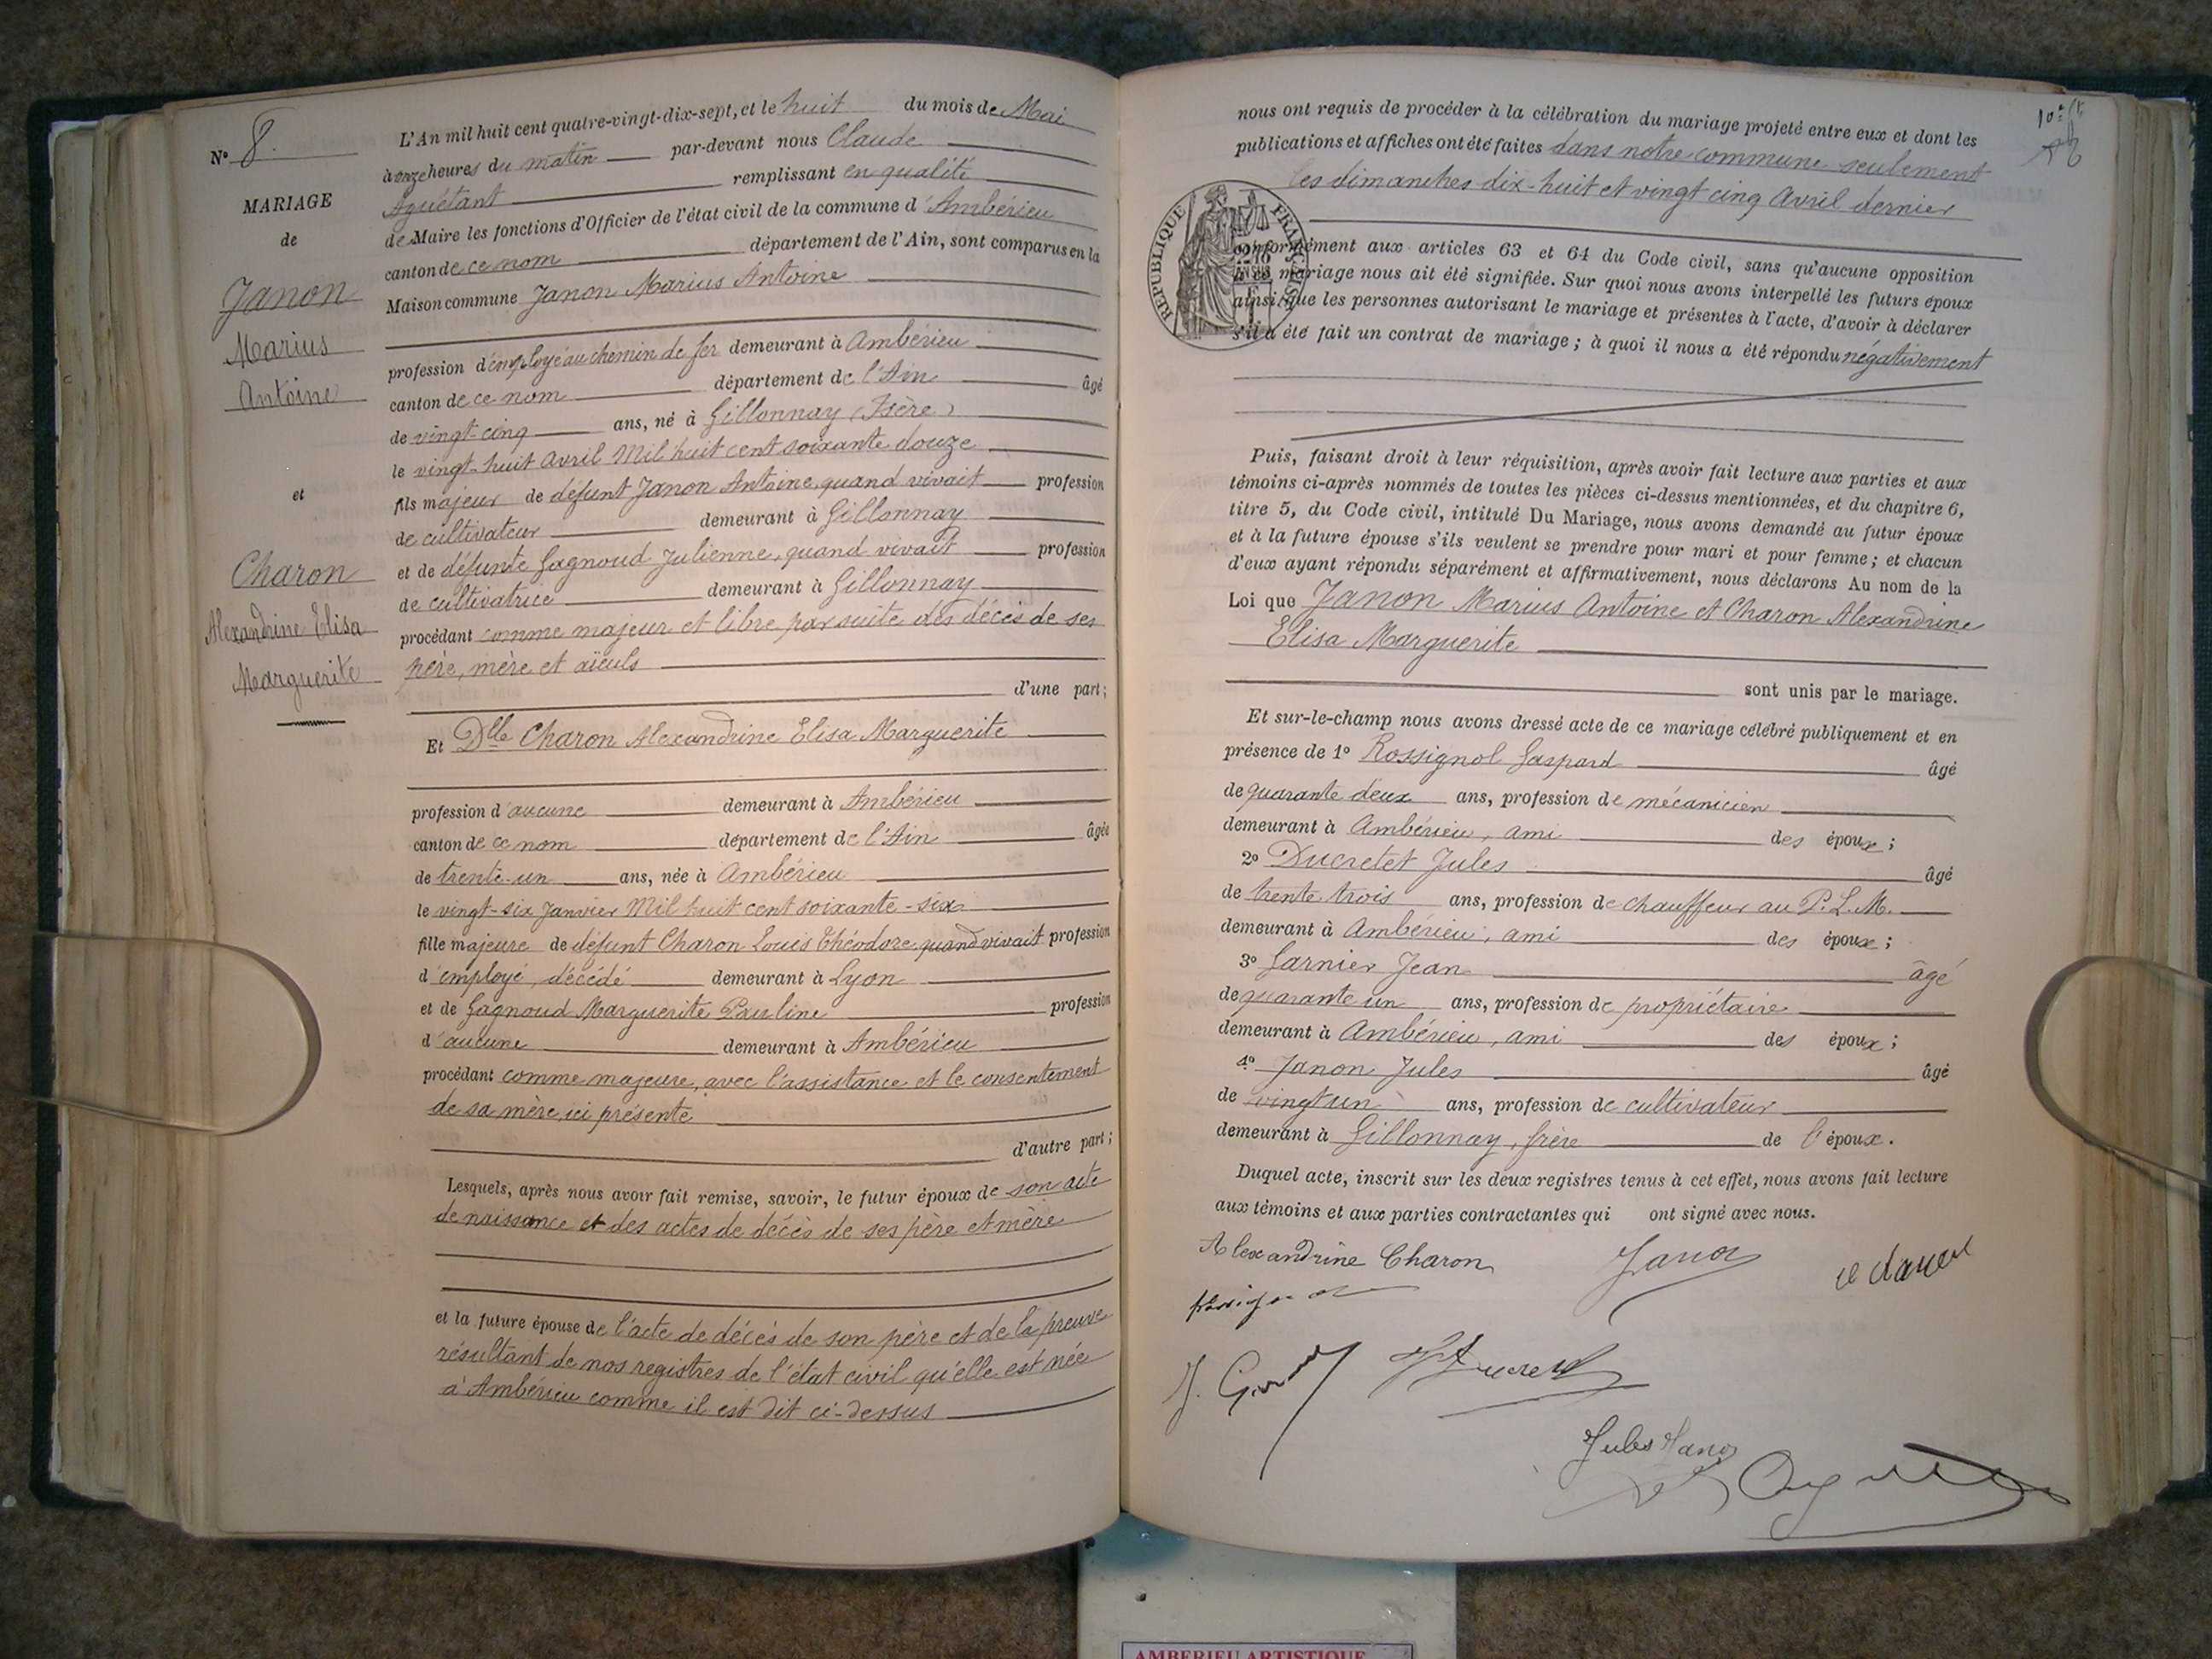 N° 8.
MARIAGE
de
Janon
Marius
Antoine
et
Charon
Alexandrine Elisa
Marguerite
L'An mil huit cent quatre-vingt-dix-sept, et le huit du mois de Mai
à onze heures du matin par-devant nous Claude
Aguétant remplissant en qualité
de Maire les fonctions d'Officier de l'état civil de la commune d'Ambérieu
canton de ce nom département de l'Ain, sont comparus en la
Maison commune Janon Marius Antoine
profession d'employé au chemin de fer demeurant à Ambérieu
canton de ce nom département de l'Ain âgé
de vingt-cinq ans, né à Gillonnay (Isère)
le vingt-huit Avril Mil huit cent soixante douze
fils majeur de défunt Janon Antoine, quand vivait profession
de cultivateur demeurant à Gillonnay
et de défunte Gagnoud Julienne, quand vivait profession
de cultivatrice demeurant à Gillonnay
procédant comme majeur et libre par suite des décès de ses
père, mère et aïeuls
d'une part;
Et Dlle Charon Alexandrine Elisa Marguerite
profession d'aucune demeurant à Ambérieu
canton de ce nom département de l'Ain âgée
de trente-un ans, née à Ambérieu
le vingt-six Janvier Mil huit cent soixante-six
fille majeure de défunt Charon Louis Théodore, quand vivait profession
d'employé, décédé demeurant à Lyon
et de Gagnoud Marguerite Pauline profession
d'aucune demeurant à Ambérieu
procédant comme majeure, avec l'assistance et le consentement
de sa mère, ici présente
d'autre part;
Lesquels, après nous avoir fait remise, savoir, le futur époux de son acte
de naissance et des actes de décès de ses père et mère
et la future épouse de l'acte de décès de son père et de la preuve
résultant de nos registres de l'état civil qu'elle est née
à Ambérieu comme il est dit ci-dessus
nous ont requis de procéder à la célébration du mariage projeté entre eux et dont les
publications et affiches ont été faites dans notre commune seulement
les dimanches dix-huit et vingt cinq Avril dernier
RÉPUBLIQUE FRANÇAISE
conformément aux articles 63 et 64 du Code civil, sans qu'aucune opposition
à ce mariage nous ait été signifiée. Sur quoi nous avons interpellé les futurs époux
ainsi que les personnes autorisant le mariage et présentes à l'acte, d'avoir à déclarer
s'il a été fait un contrat de mariage; à quoi il nous a été répondu négativement
Puis, faisant droit à leur réquisition, après avoir fait lecture aux parties et aux
témoins ci-après nommés de toutes les pièces ci-dessus mentionnées, et du chapitre 6,
titre 5, du Code civil, intitulé Du Mariage, nous avons demandé au futur époux
et à la future épouse s'ils veulent se prendre pour mari et pour femme; et chacun
d'eux ayant répondu séparément et affirmativement, nous déclarons Au nom de la
Loi que Janon Marius Antoine et Charon Alexandrine
Elisa Marguerite
sont unis par le mariage.
Et sur-le-champ nous avons dressé acte de ce mariage célébré publiquement et en
présence de 1° Rossignol Gaspard âgé
de quarante deux ans, profession de mécanicien
demeurant à Ambérieu, ami des époux;
2° Ducretet Jules âgé
de trente-trois ans, profession de chauffeur au P.L.M.
demeurant à Ambérieu, ami des époux;
3° Garnier Jean âgé
de quarante un ans, profession de propriétaire
demeurant à Ambérieu, ami des époux;
4° Janon Jules âgé
de vingt un ans, profession de cultivateur
demeurant à Gillonnay, frère de l'époux.
Duquel acte, inscrit sur les deux registres tenus à cet effet, nous avons fait lecture
aux témoins et aux parties contractantes qui ont signé avec nous.
Alexandrine Charon Janon
Jules Janon
AMBERIEU ARTISTIQUE